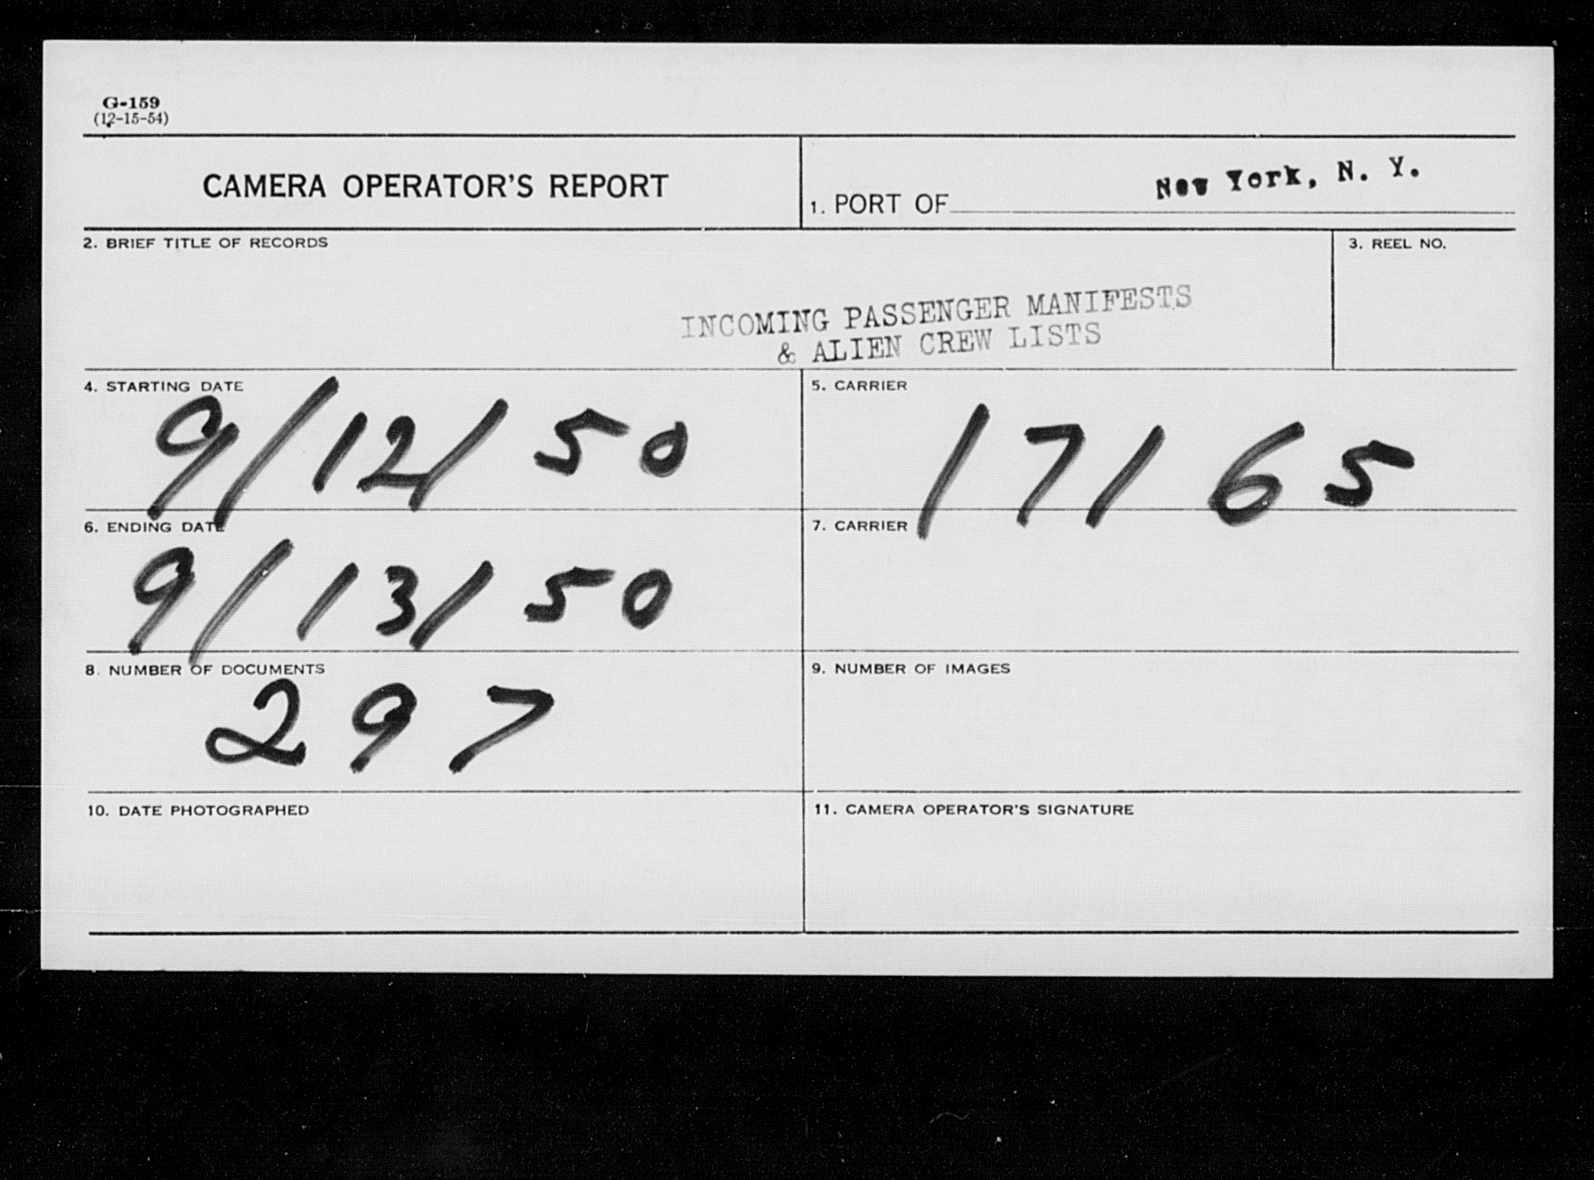 G-159
(12-15-54)
CAMERA OPERATOR'S REPORT
1. PORT OF New York, N. Y.
2. BRIEF TITLE OF RECORDS
3. REEL NO.
INCOMING PASSENGER MANIFESTS
& ALIEN CREW LISTS
4. STARTING DATE
9/12/50
5. CARRIER
17165
6. ENDING DATE
9/13/50
7. CARRIER
8. NUMBER OF DOCUMENTS
297
9. NUMBER OF IMAGES
10. DATE PHOTOGRAPHED
11. CAMERA OPERATOR'S SIGNATURE